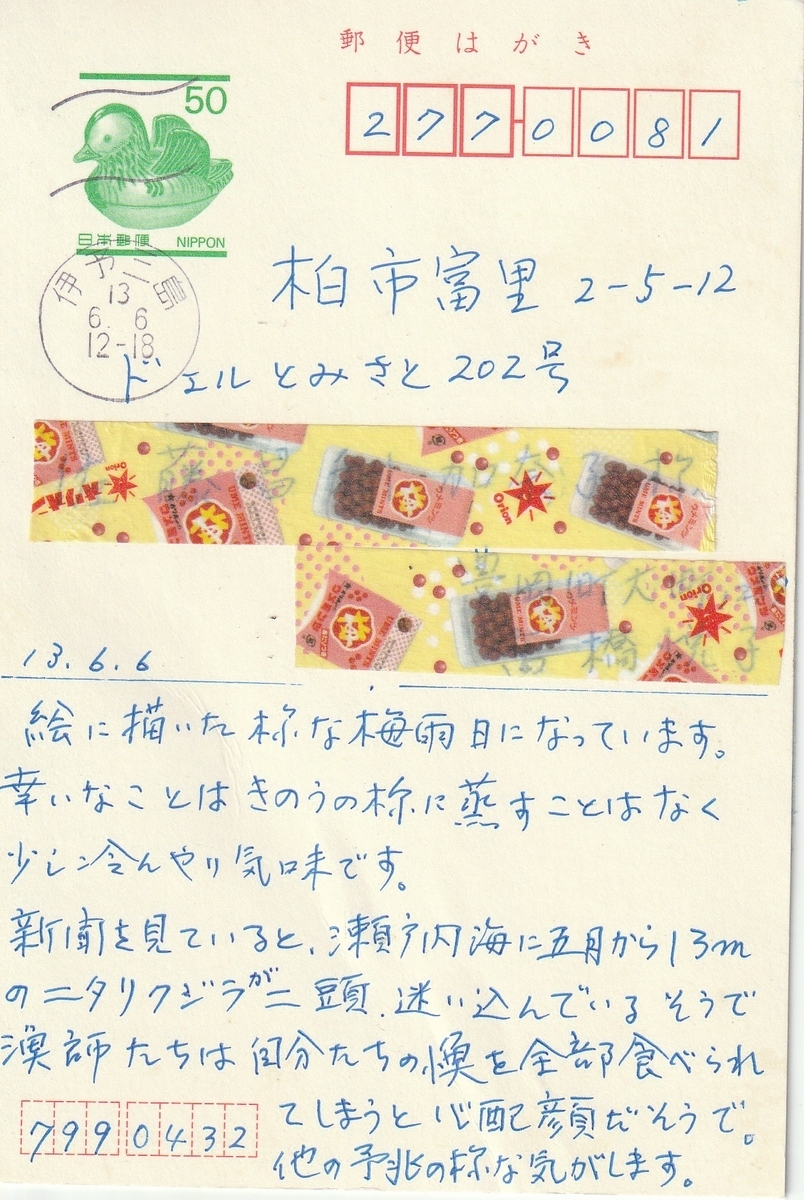 郵便はがき
50
277-0081
日本郵便 NIPPON
伊予三島
13
6. 6
12-18
柏市富里 2-5-12
ドエルとみさと 202号
オリオン
Orion
梅
ウメミンツ
UME MINTS
Orion
梅
ウメミンツ
UME MINTS
梅
UME MINTS
Orion
13.6.6
絵に描いた様な梅雨日になっています。
幸いなことはきのうの様に蒸すことはなく
少し冷んやり気味です。
新聞を見ていると、瀬戸内海に五月から13m
のニタリクジラが二頭、迷い込んでいるそうで
漁師たちは自分たちの漁を全部食べられ
てしまうと心配顔だそうで。
他の予兆の様な気がします。
7990432